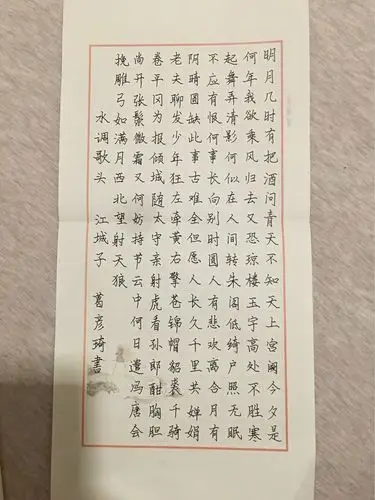 明月几时有把酒问青天不知天上宫阙今夕是
何年我欲乘风归去又恐琼楼玉宇高处不胜寒
起舞弄清影何似在人间转朱阁低绮户照无眠
不应有恨何事长向别时圆人有悲欢离合月有
阴晴圆缺此事古难全但愿人长久千里共婵娟
老夫聊发少年狂左牵黄右擎苍锦帽貂裘千骑
卷平冈为报倾城随太守亲射虎看孙郎酣胸胆
尚开张鬓微霜又何妨持节云中何日遣冯唐会
挽雕弓如满月西北望射天狼
水调歌头 江城子 葛彦琦書